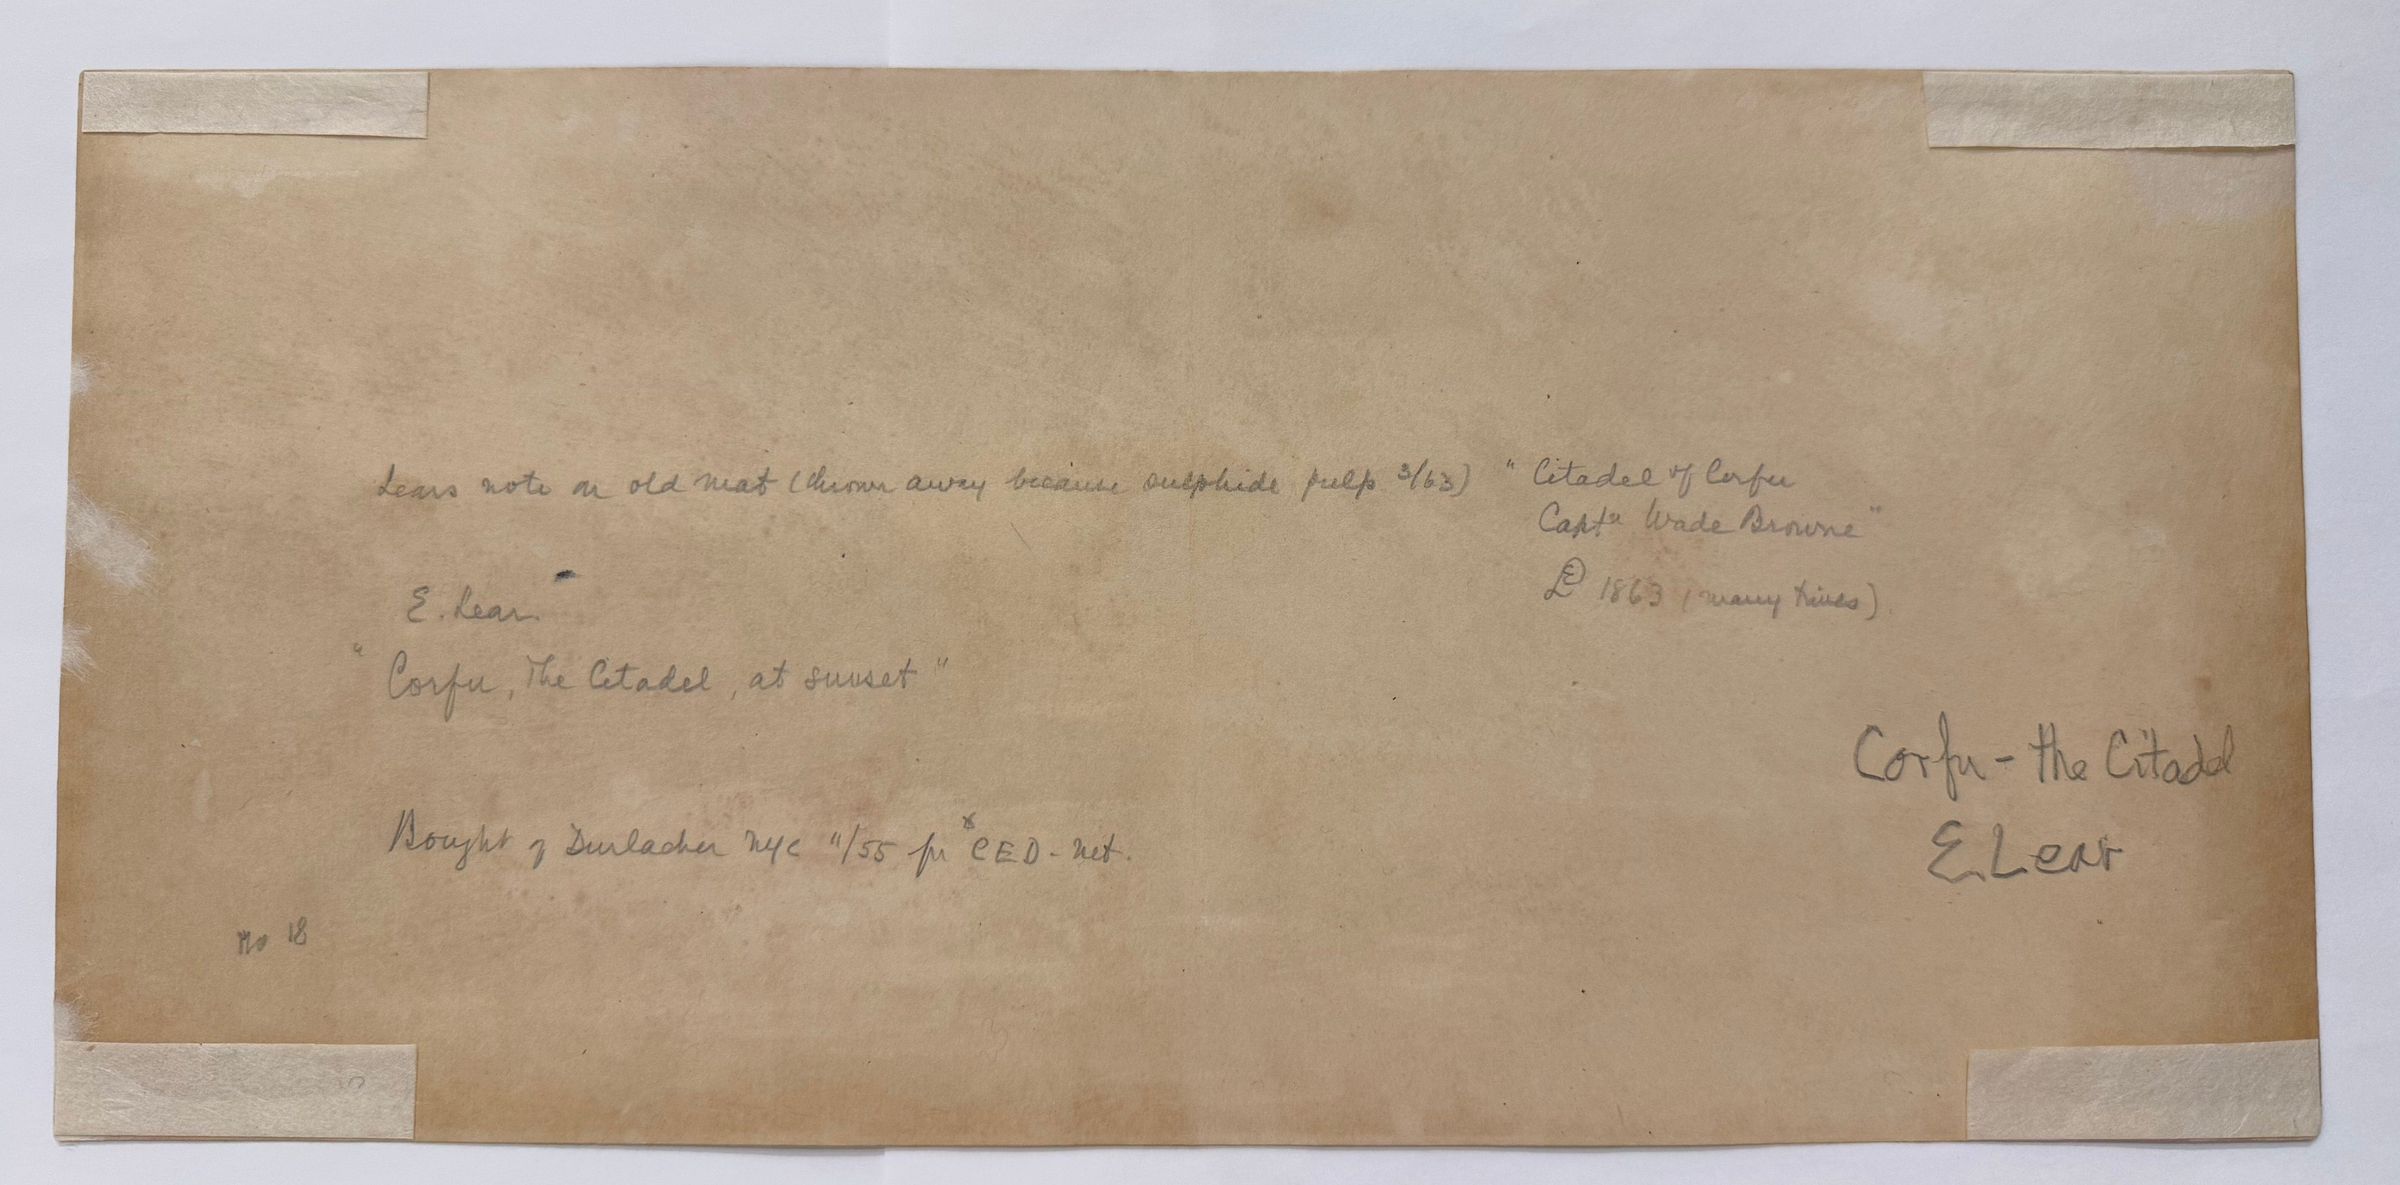 Lears note on old mat (thrown away because sulphide pulp 3/63) " Citadel of Corfu
Captn Wade Browne"
1863 (many times)
E. Lear
" Corfu, The Citadel, at sunset "
Corfu - the Citadel
E. Lear
Bought of Durlacher NYC 11/55 fr x CED - net.
No 18